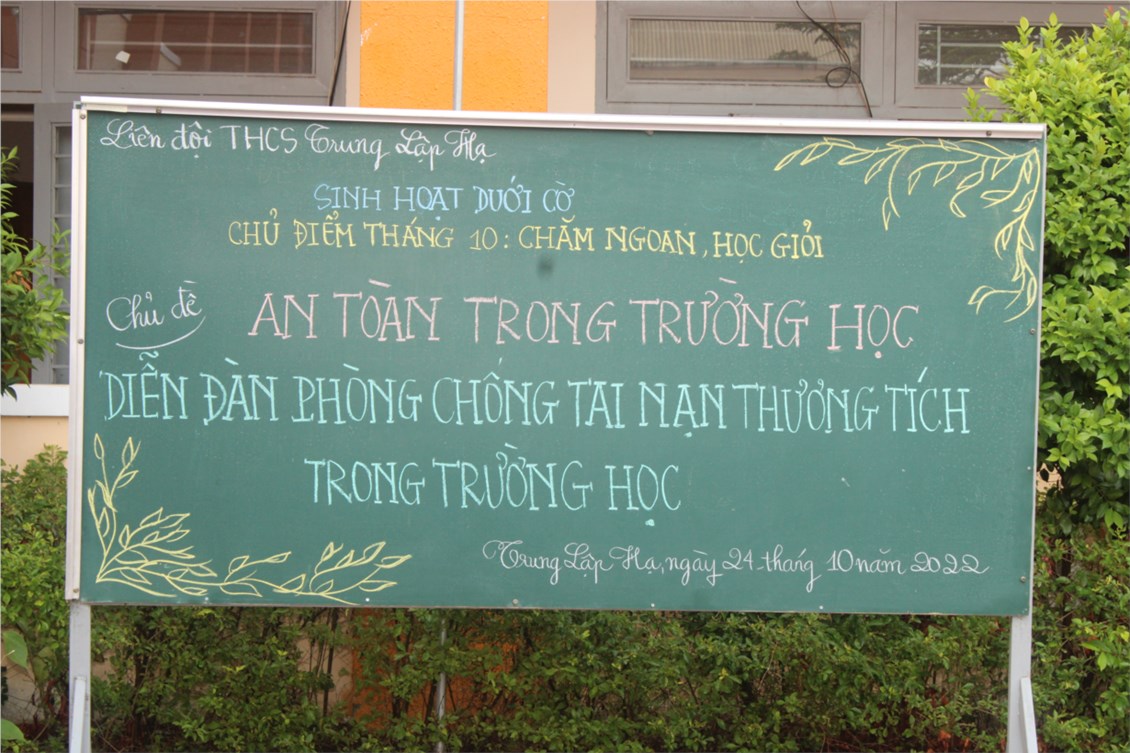 Liên đội THCS Trung Lập Hạ
SINH HOẠT DƯỚI CỜ
CHỦ ĐIỂM THÁNG 10: CHĂM NGOAN, HỌC GIỎI
Chủ đề AN TOÀN TRONG TRƯỜNG HỌC
DIỄN ĐÀN PHÒNG CHỐNG TAI NẠN THƯƠNG TÍCH
TRONG TRƯỜNG HỌC
Trung Lập Hạ, ngày 24 tháng 10 năm 2022